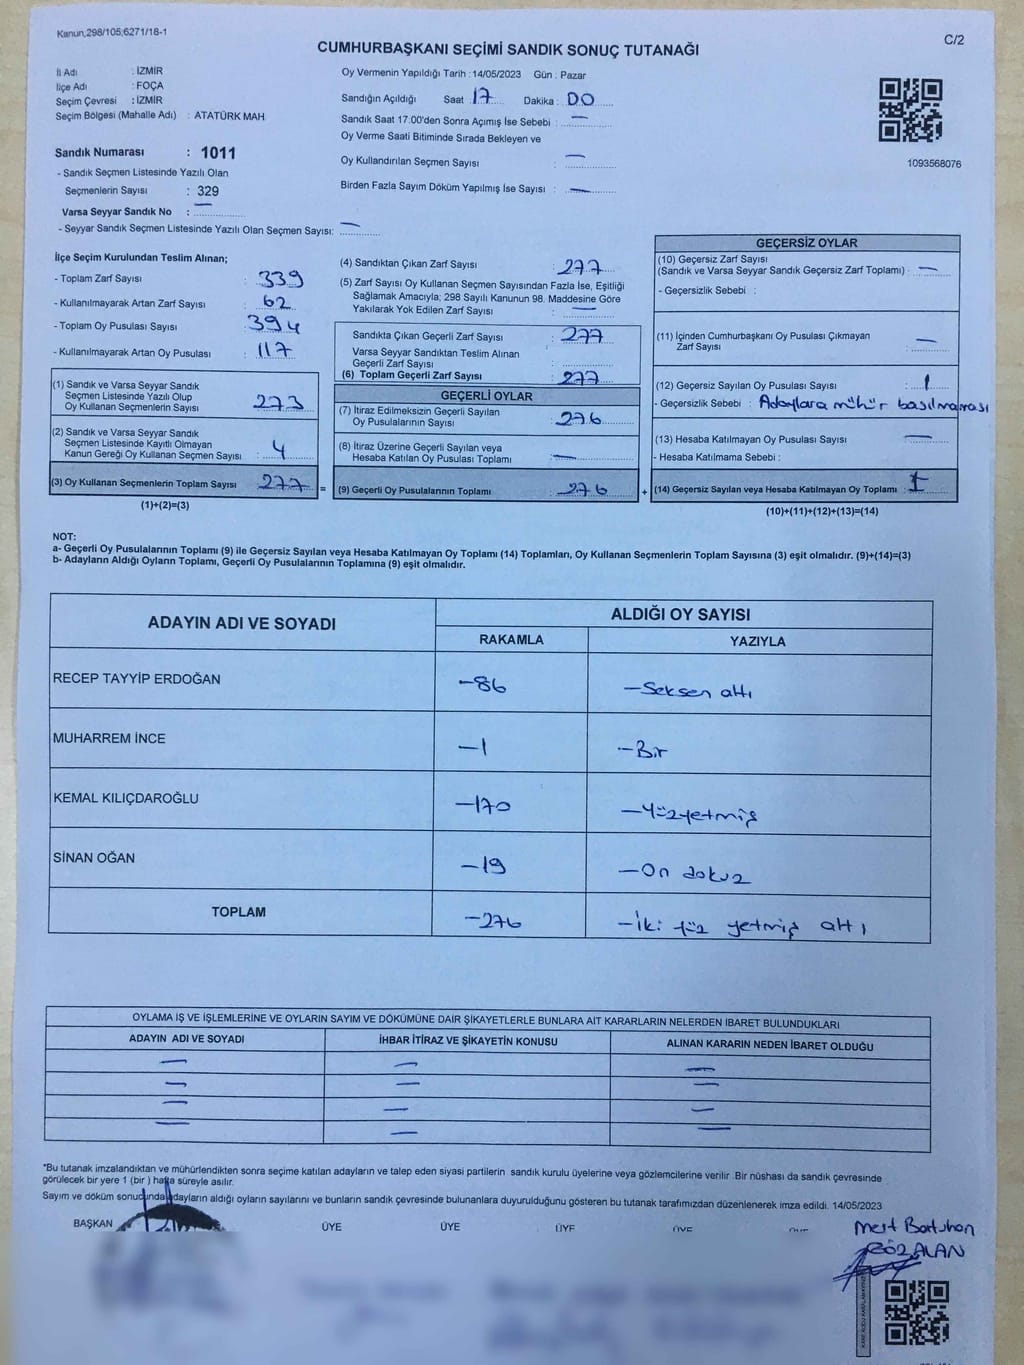 Kanun,298/105;6271/18-1
C/2
CUMHURBAŞKANI SEÇİMİ SANDIK SONUÇ TUTANAĞI
İl Adı : İZMİR
İlçe Adı : FOÇA
Seçim Çevresi : İZMİR
Seçim Bölgesi (Mahalle Adı) : ATATÜRK MAH.
Sandık Numarası : 1011
- Sandık Seçmen Listesinde Yazılı Olan
Seçmenlerin Sayısı : 329
Varsa Seyyar Sandık No : —
- Seyyar Sandık Seçmen Listesinde Yazılı Olan Seçmen Sayısı: —
Oy Vermenin Yapıldığı Tarih : 14/05/2023 Gün : Pazar
Sandığın Açıldığı Saat : 17 Dakika : 00
Sandık Saat 17.00'den Sonra Açımış İse Sebebi : —
Oy Verme Saati Bitiminde Sırada Bekleyen ve
Oy Kullandırılan Seçmen Sayısı : —
Birden Fazla Sayım Döküm Yapılmış İse Sayısı : —
1093568076
İlçe Seçim Kurulundan Teslim Alınan;
- Toplam Zarf Sayısı : 339
- Kullanılmayarak Artan Zarf Sayısı : 62
- Toplam Oy Pusulası Sayısı : 394
- Kullanılmayarak Artan Oy Pusulası : 117
(1) Sandık ve Varsa Seyyar Sandık
Seçmen Listesinde Yazılı Olup
Oy Kullanan Seçmenlerin Sayısı : 273
(2) Sandık ve Varsa Seyyar Sandık
Seçmen Listesinde Kayıtlı Olmayan
Kanun Gereği Oy Kullanan Seçmen Sayısı : 4
(3) Oy Kullanan Seçmenlerin Toplam Sayısı 277 =
(1)+(2)=(3)
(4) Sandıktan Çıkan Zarf Sayısı : 277
(5) Zarf Sayısı Oy Kullanan Seçmen Sayısından Fazla İse, Eşitliği
Sağlamak Amacıyla; 298 Sayılı Kanunun 98. Maddesine Göre
Yakılarak Yok Edilen Zarf Sayısı : —
Sandıkta Çıkan Geçerli Zarf Sayısı : 277
Varsa Seyyar Sandıktan Teslim Alınan
Geçerli Zarf Sayısı :
(6) Toplam Geçerli Zarf Sayısı : 277
GEÇERLİ OYLAR
(7) İtiraz Edilmeksizin Geçerli Sayılan
Oy Pusulalarının Sayısı : 276
(8) İtiraz Üzerine Geçerli Sayılan veya
Hesaba Katılan Oy Pusulası Toplamı : —
(9) Geçerli Oy Pusulalarının Toplamı : 276 +
GEÇERSİZ OYLAR
(10) Geçersiz Zarf Sayısı
(Sandık ve Varsa Seyyar Sandık Geçersiz Zarf Toplamı) : —
- Geçersizlik Sebebi :
(11) İçinden Cumhurbaşkanı Oy Pusulası Çıkmayan
Zarf Sayısı : —
(12) Geçersiz Sayılan Oy Pusulası Sayısı : 1
- Geçersizlik Sebebi : Adaylara mühür basılmaması
(13) Hesaba Katılmayan Oy Pusulası Sayısı : —
- Hesaba Katılmama Sebebi :
(14) Geçersiz Sayılan veya Hesaba Katılmayan Oy Toplamı : 1
(10)+(11)+(12)+(13)=(14)
NOT:
a- Geçerli Oy Pusulalarının Toplamı (9) ile Geçersiz Sayılan veya Hesaba Katılmayan Oy Toplamı (14) Toplamları, Oy Kullanan Seçmenlerin Toplam Sayısına (3) eşit olmalıdır. (9)+(14)=(3)
b- Adayların Aldığı Oyların Toplamı, Geçerli Oy Pusulalarının Toplamına (9) eşit olmalıdır.
ADAYIN ADI VE SOYADI ALDIĞI OY SAYISI
RAKAMLA YAZIYLA
RECEP TAYYİP ERDOĞAN -86 -Seksen altı
MUHARREM İNCE -1 -Bir
KEMAL KILIÇDAROĞLU -170 -Yüzyetmiş
SİNAN OĞAN -19 -On dokuz
TOPLAM -276 -İki yüz yetmiş altı
OYLAMA İŞ VE İŞLEMLERİNE VE OYLARIN SAYIM VE DÖKÜMÜNE DAİR ŞİKAYETLERLE BUNLARA AİT KARARLARIN NELERDEN İBARET BULUNDUKLARI
ADAYIN ADI VE SOYADI İHBAR İTİRAZ VE ŞİKAYETİN KONUSU ALINAN KARARIN NEDEN İBARET OLDUĞU
— — —
— — —
— — —
— — —
*Bu tutanak imzalandıktan ve mühürlendikten sonra seçime katılan adayların ve talep eden siyasi partilerin sandık kurulu üyelerine veya gözlemcilerine verilir .Bir nüshası da sandık çevresinde
görülecek bir yere 1 (bir ) hafta süreyle asılır.
Sayım ve döküm sonucunda adayların aldığı oyların sayılarını ve bunların sandık çevresinde bulunanlara duyurulduğunu gösteren bu tutanak tarafımızdan düzenlenerek imza edildi. 14/05/2023
BAŞKAN ÜYE ÜYE ÜYE ÜYE
Mert Batuhan
GÖZALAN